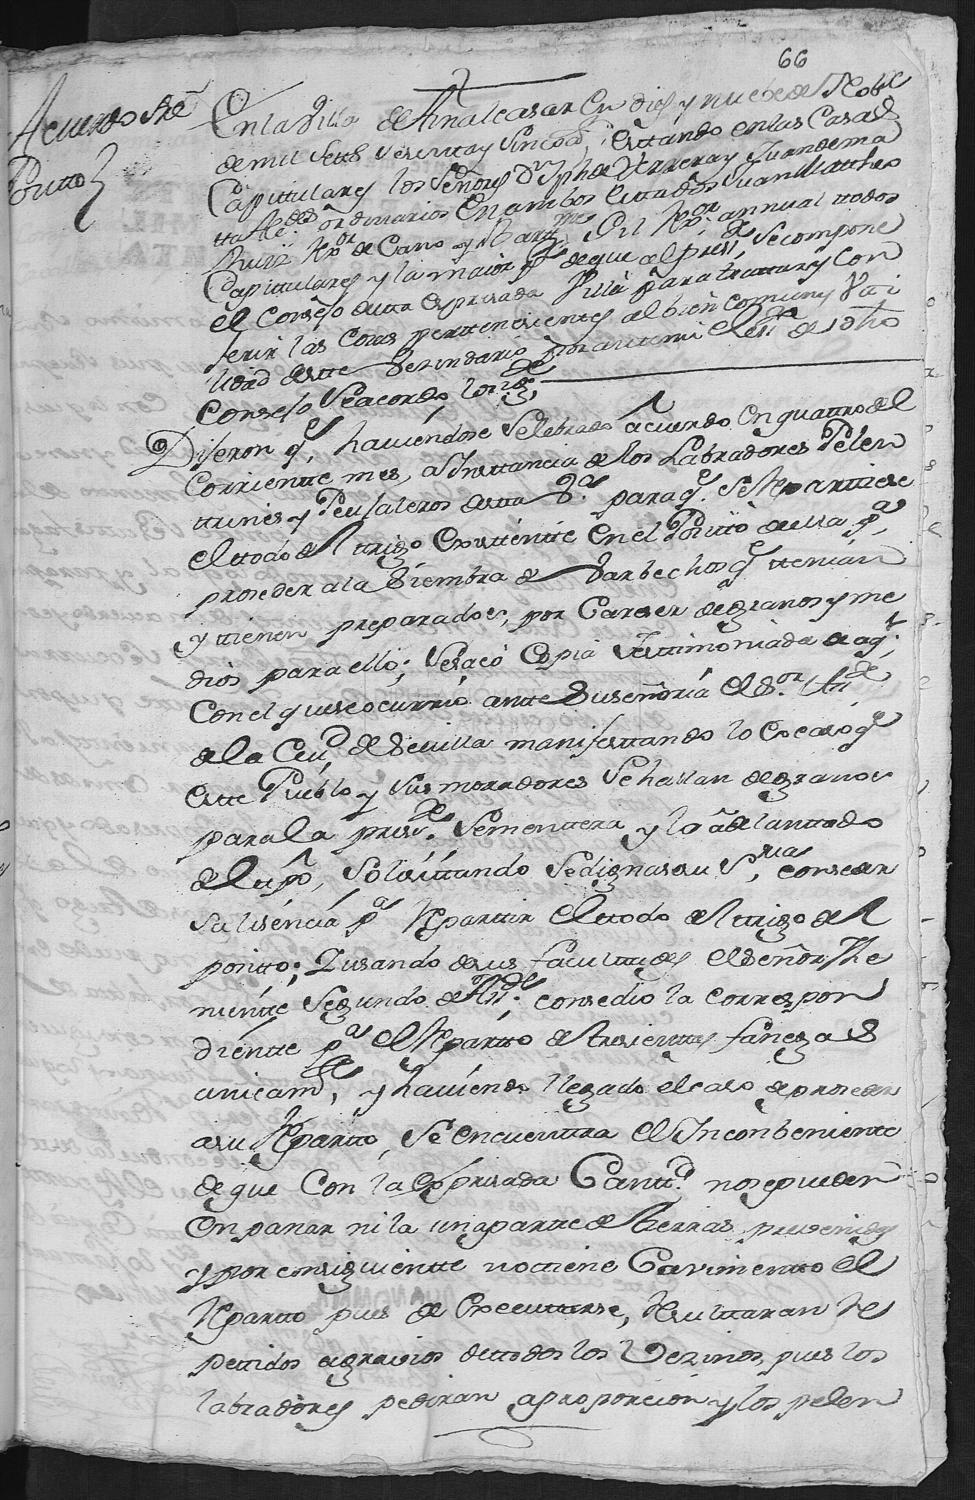 66
Acuerdo sre
Positto
En la Villa de Hinalcasar en dies y nuebe de 8tobre
de mil setts. sesenta y sinco as. esttando en las Casas
Capittulares los Señores Dn. Jph de Herrera y Juan de ma
tta Alcdes. ordinarios en ambos esttados Juan Mattheo
Ruiz Rxor. de Cano y Martin Gil Rxor. annual ttodos
Capittulares y la maior pte. de que al preste. se compone
el Consejo de esta expresada Villa para trattar y con
ferir las cosas perttenesienttes al bien comun y utti
lidad de este Vezindario por antte mi el essno. de dho
Consejo se acordo lo sigte.
Dijeron qe. haviendose selebrado acuerdo en quattro del
corriente mes, a Insttancia de los Labradores Pelen
ttrines y Peujaleros de esta Va. para qe. se reparttiese
el ttodo del ttrigo existtente en el Positto de ella pa.
proseder a la siembra de barbechos qe. ttenian
y ttienen preparados, por careser de granos y me
dios para ello; se sacó copia testtimoniada de aql.
con el que se ocurrió antte su señoria el Sor. Asistte.
de la Ciud. de Sevilla manifesttando lo escaso qe.
este Pueblo y sus moradores se hallan de granos
para la preste. sementtera y lo adelanttado
del tpo, solisittando se dignase su Sria. conseder
su lisencia pa. reparttir el ttodo del ttrigo del
positto; Y usando de sus facultades el señor The
niente Segundo de Asistte. consedió la correspon
diente pa. el repartto de tresienttas fanegas
unicamte, y haviendo llegado el caso de proseder
a su repartto, se encuentra el Inconbeniente
de que con la expresada Cantd. no se pueden
enpanar ni la una partte de tierras prevenidas
y por consiguientte no ttiene cavimentto el
repartto pues de executtarse, resulttaran re
pettidos agravios de ttodos los Vezinos, pues los
labradores pediran a proporcion y los pelen